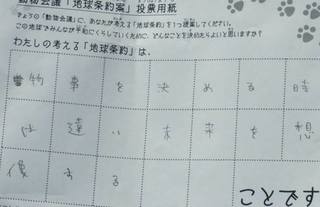 動物会議「地球条約案」投票用紙
きょうの「動物会議」に、あなたが考える「地球条約」を1つ提案してください。
この地球でみんなが平和にくらしていくために、どんなことを決めたらよいと思いますか?
わたしの考える「地球条約」は、
物事を決める時
は遠い未来を想
像する
ことです